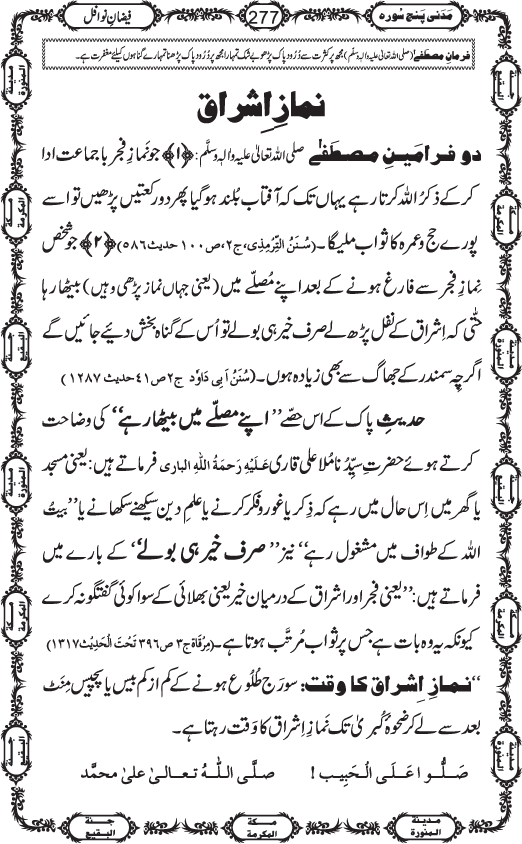 مَدَنی پنج سورہ
277
فیضانِ نوافل
فرمانِ مصطفٰے: (صلی اللہ تعالیٰ علیہ والہٖ وسلّم) مجھ پر کثرت سے دُرُودِ پاک پڑھو بے شک تمہارا مجھ پر دُرُودِ پاک پڑھنا تمہارے گناہوں کیلئے مغفرت ہے۔
نمازِ اِشراق
دو فرامَینِ مصطَفٰے صلی اللہ تعالیٰ علیہ والہٖ وسلَّم: ﴿۱﴾ جو نَمازِ فجر با جماعت ادا
کرکے ذکرُ اللہ کرتا رہے یہاں تک کہ آفتاب بُلند ہوگیا پھر دو رَکعتیں پڑھیں تو اسے
پورے حج و عمرہ کا ثواب ملیگا۔ (سُنَنُ التِّرمِذِی، ج۲، ص۱۰۰ حدیث۵۸۶) ﴿۲﴾ جو شخص
نمازِ فجر سے فارغ ہونے کے بعد اپنے مُصلّے میں (یعنی جہاں نماز پڑھی وہیں) بیٹھا رہا
حتّٰی کہ اِشراق کے نفل پڑھ لے صرف خیر ہی بولے تو اُس کے گناہ بخش دیئے جائیں گے
اگرچِہ سمندر کے جھاگ سے بھی زیادہ ہوں۔ (سُنَنُ اَبِی دَاوٗد ج۲ ص۴۱ حدیث ۱۲۸۷)
حدیثِ پاک کے اس حصّے ’’اپنے مصلّے میں بیٹھا رہے‘‘ کی وضاحت
کرتے ہوئے حضرتِ سیِّدُنا مُلّا علی قاری عَلَیْہِ رَحمَۃُ اللہِ الباری فرماتے ہیں: یعنی مسجد
یا گھر میں اِس حال میں رہے کہ ذِکر یا غور و فکر کرنے یا علمِ دین سیکھنے سکھانے یا ’’بیتُ
اللہ کے طواف میں مشغول رہے‘‘ نیز ’’صرف خیر ہی بولے‘‘ کے بارے میں
فرماتے ہیں: ’’یعنی فجر اور اشراق کے درمیان خیر یعنی بھلائی کے سوا کوئی گفتگو نہ کرے
کیونکہ یہ وہ بات ہے جس پر ثواب مُرتَّب ہوتا ہے۔ (مِرْقَاۃ ج۳ ص۳۹۶ تَحْتَ الْحَدِیْث۱۳۱۷)
’’نمازِ اِشراق کا وقت: سورَج طُلُوع ہونے کے کم از کم بیس یا پچیس مِنَٹ
بعد سے لے کر ضَحوۂ کُبریٰ تک نمازِ اِشراق کا وَقت رہتا ہے۔
صَلُّوا عَلَی الْحَبِیب! صلَّی اللّٰہُ تعالیٰ علیٰ محمَّد
مدینۃ المنورۃ
مکۃ المکرمۃ
جنۃ البقیع
مدینۃ المنورۃ
مکۃ المکرمۃ
جنۃ البقیع
جنۃ البقیع
مکۃ المکرمۃ
مدینۃ المنورۃ
جنۃ البقیع
مکۃ المکرمۃ
مدینۃ المنورۃ
مدینۃ المنورۃ
مکۃ المکرمۃ
جنۃ البقیع